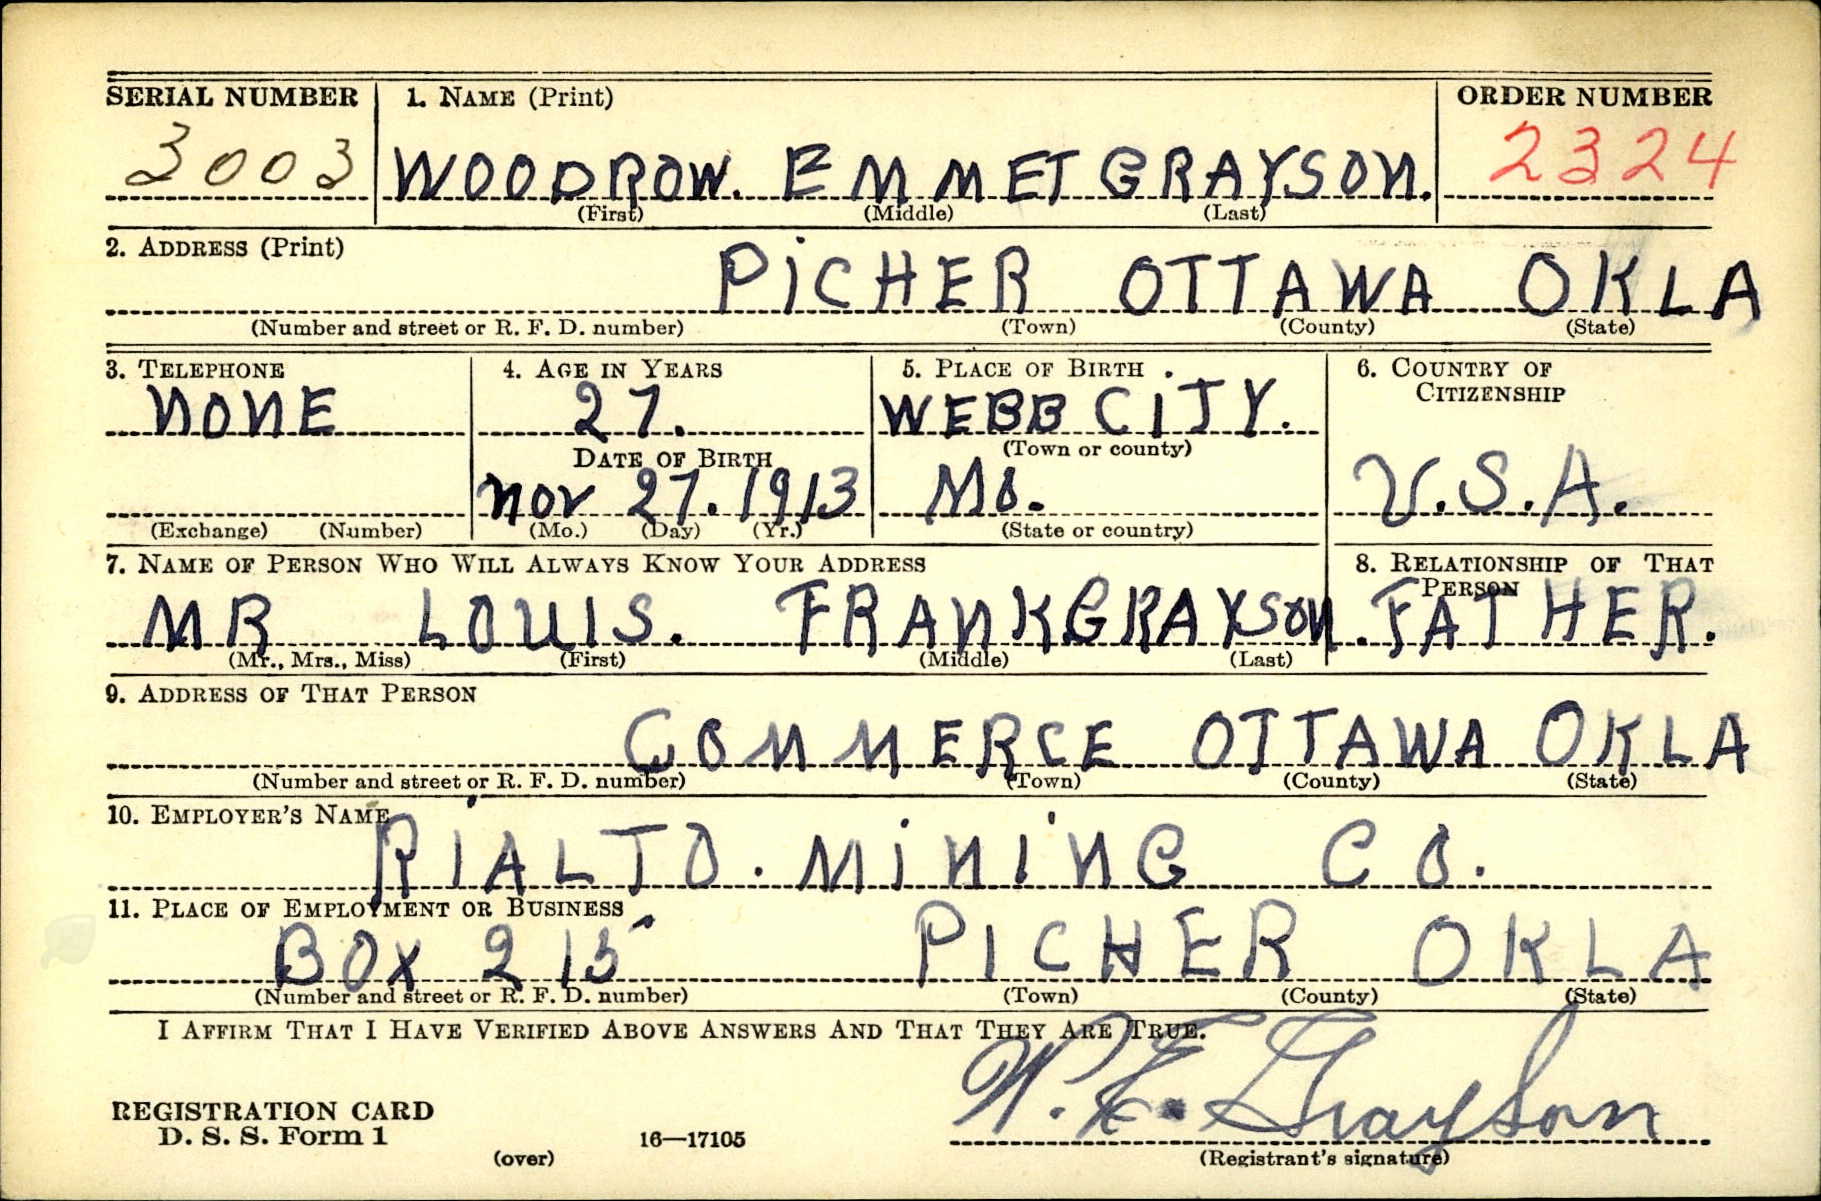 SERIAL NUMBER 1. NAME (Print) ORDER NUMBER
3003 WOODROW. EMMET GRAYSON. 2324
(First) (Middle) (Last)
2. ADDRESS (Print)
PICHER OTTAWA OKLA
(Number and street or R. F. D. number) (Town) (County) (State)
3. TELEPHONE 4. AGE IN YEARS 5. PLACE OF BIRTH 6. COUNTRY OF
CITIZENSHIP
NONE 27. WEBB CITY.
DATE OF BIRTH (Town or county)
Nov 27. 1913 Mo. U.S.A.
(Exchange) (Number) (Mo.) (Day) (Yr.) (State or country)
7. NAME OF PERSON WHO WILL ALWAYS KNOW YOUR ADDRESS 8. RELATIONSHIP OF THAT
PERSON
MR LOUIS. FRANK GRAYSON. FATHER.
(Mr., Mrs., Miss) (First) (Middle) (Last)
9. ADDRESS OF THAT PERSON
COMMERCE OTTAWA OKLA
(Number and street or R. F. D. number) (Town) (County) (State)
10. EMPLOYER'S NAME
RIALTO. MINING CO.
11. PLACE OF EMPLOYMENT OR BUSINESS
BOX 215 PICHER OKLA
(Number and street or R. F. D. number) (Town) (County) (State)
I AFFIRM THAT I HAVE VERIFIED ABOVE ANSWERS AND THAT THEY ARE TRUE.
W. E. Grayson
REGISTRATION CARD
D. S. S. Form 1 16—17105
(over) (Registrant's signature)